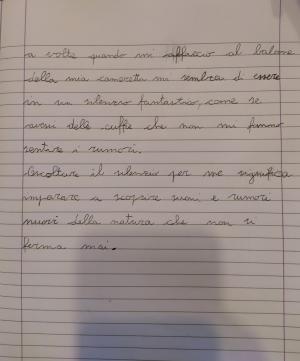 a volte quando mi affaccio al balcone
della mia cameretta mi sembra di essere
in un silenzio fantastico, come se
avessi delle cuffie che non mi fanno
sentire i rumori.
Ascoltare il silenzio per me significa
imparare a scoprire suoni e rumori
nuovi della natura che non si
ferma mai.